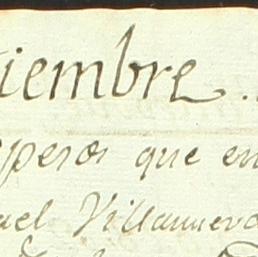 iembre
pesos que en
uel Villanueva